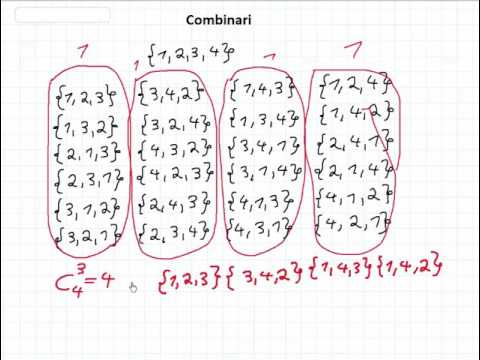 Combinari
1 1 {1,2,3,4} 1 1
{1,2,3} {3,4,2} {1,4,3} {1,2,4}
{1,3,2} {3,2,4} {1,3,4} {1,4,2}
{2,1,3} {4,3,2} {3,4,1} {2,4,1}
{2,3,1} {4,2,3} {3,1,4} {2,1,4}
{3,1,2} {2,4,3} {4,1,3} {4,1,2}
{3,2,1} {2,3,4} {4,3,1} {4,2,1}
C₄³=4 {1,2,3}{3,4,2}{1,4,3}{1,4,2}